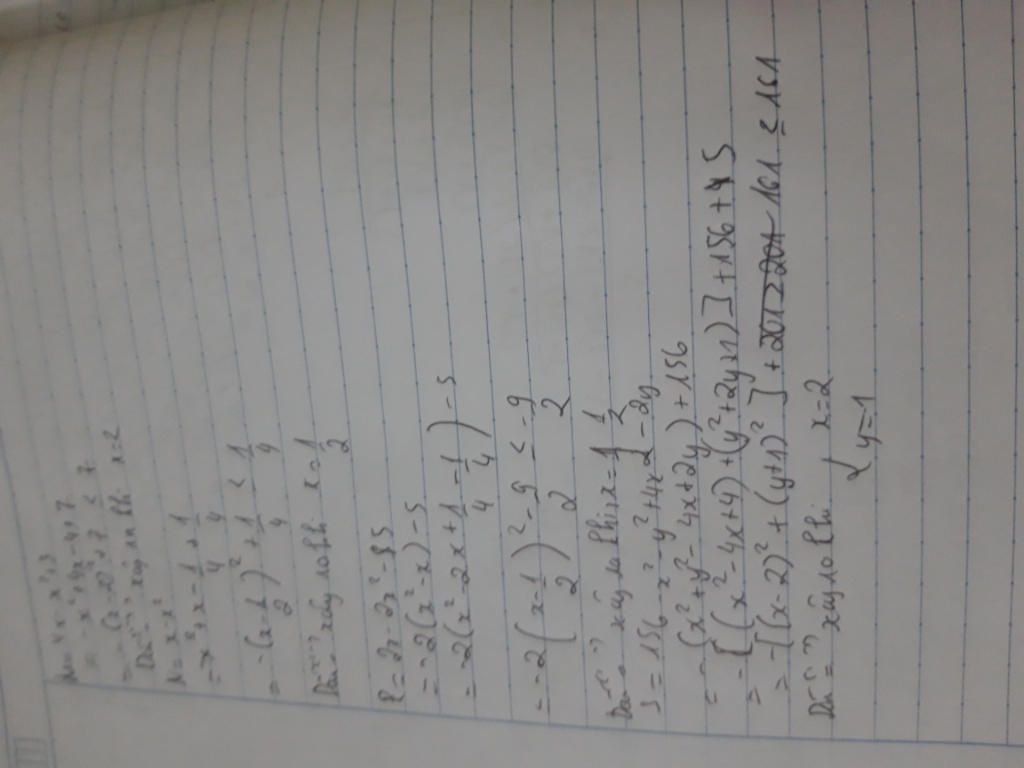 M = 4x - x² + 3
= -x² + 4x - 4 + 7
= -(x - 2)² + 7 ≤ 7
Dấu "=" xảy ra khi x = 2
N = x - x²
= -x² + x - 1/4 + 1/4
= -(x - 1/2)² + 1/4 ≤ 1/4
Dấu "=" xảy ra khi x = 1/2
P = 2x - 2x² - 5
= -2(x² - x) - 5
= -2(x² - 2x + 1/4 - 1/4) - 5
= -2(x - 1/2)² - 9/2 ≤ -9/2
Dấu "=" xảy ra khi x = 1/2
S = 156 - x² - y² + 4x - 2y
= -(x² + y² - 4x + 2y) + 156
= -[(x² - 4x + 4) + (y² + 2y + 1)] + 156 + 5
= -[(x - 2)² + (y + 1)²] + 161 ≤ 161
Dấu "=" xảy ra khi x = 2
y = -1